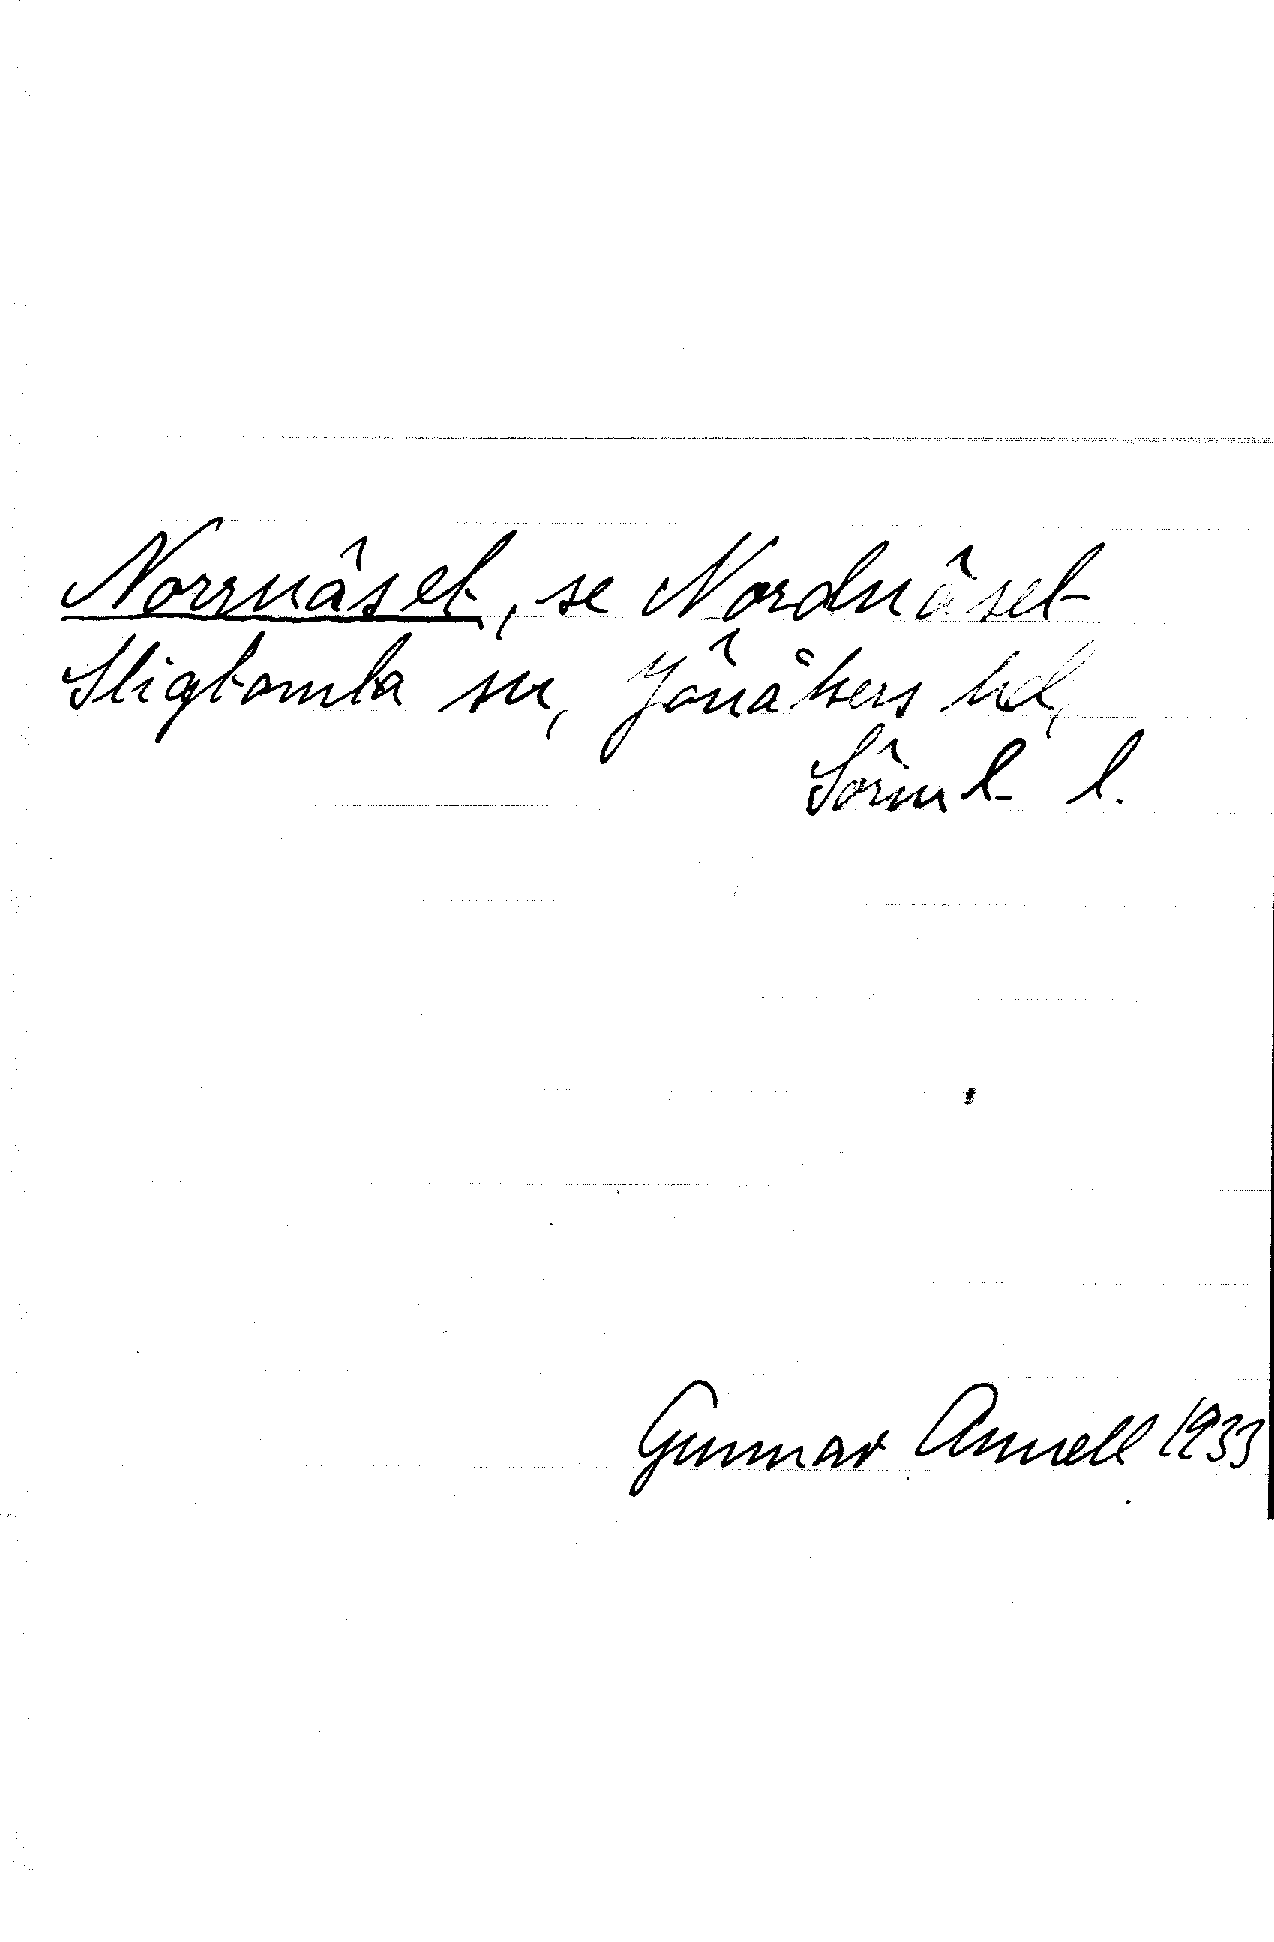 Norrnäset, se Nordnäset
Stigtomta sn, Jönåkers hd,
Sörml l.
Gunnar Amell 1933